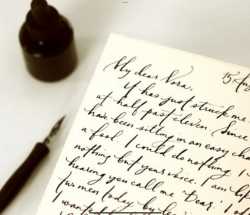 15 Aug
My dear Nora,
It has just struck me
at half past eleven. Since
have been sitting in an easy cha
a fool. I could do nothing. I
nothing but your voice. I am li
hearing you call me 'Dear'. I
two men today by
want